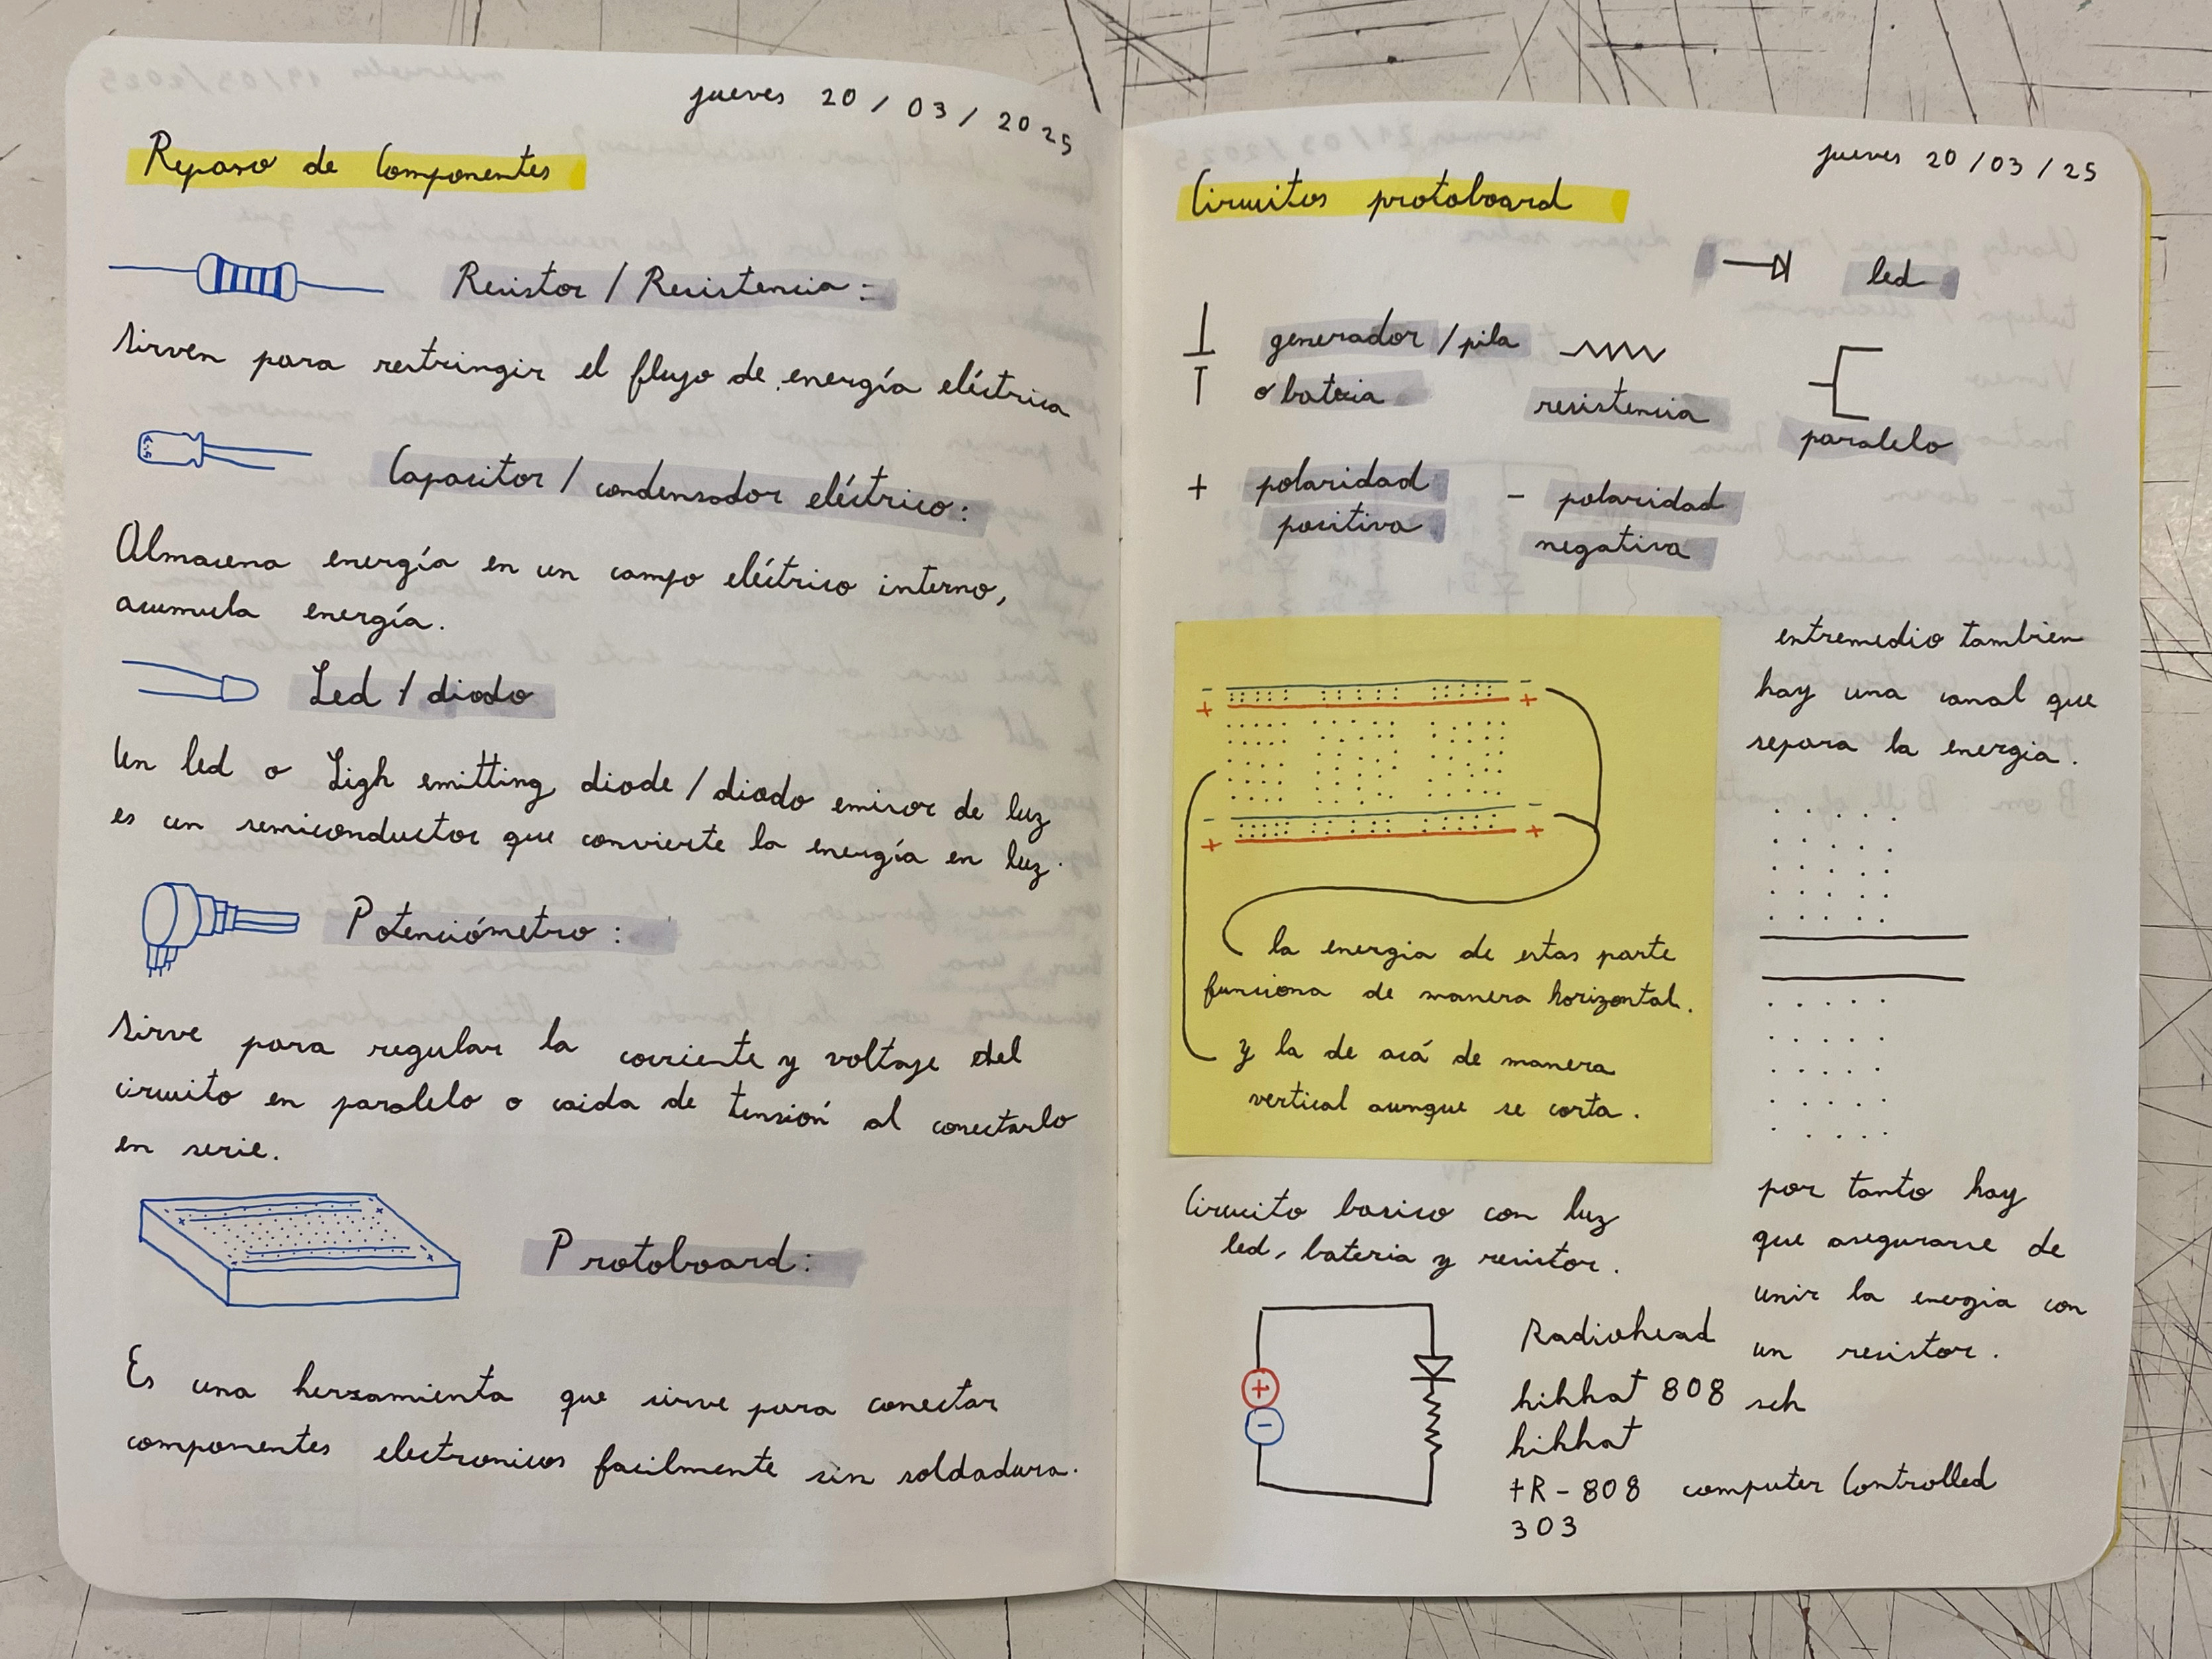 jueves 20 / 03 / 2025
Repaso de Componentes
Resistor / Resistencia :
sirven para restringir el flujo de energía eléctrica
Capacitor / condensador eléctrico :
Almacena energía en un campo eléctrico interno,
acumula energía.
Led / diodo
Un led o Ligh emitting diode / diodo emisor de luz
es un semiconductor que convierte la energía en luz.
Potenciómetro :
sirve para regular la corriente y voltaje del
circuito en paralelo o caida de tensión al conectarlo
en serie.
Protoboard :
Es una herramienta que sirve para conectar
componentes electronicos facilmente sin soldadura.
jueves 20 / 03 / 25
Circuitos protoboard
led
generador / pila
o bateria
resistencia
paralelo
+ polaridad
positiva
- polaridad
negativa
- -
+ +
- -
+ +
la energia de estas parte
funciona de manera horizontal.
y la de acá de manera
vertical aunque se corta.
entremedio tambien
hay una canal que
separa la energia.
por tanto hay
que asegurarse de
unir la energia con
un resistor.
Circuito basico con luz
led, bateria y resistor.
+
-
Radiohead
hihhat 808 sch
hihhat
tR - 808 computer Controlled
303